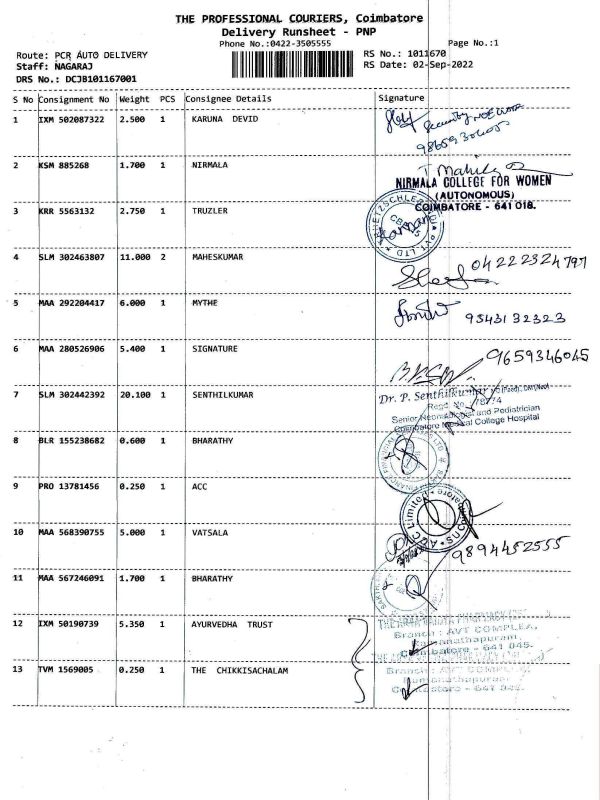 THE PROFESSIONAL COURIERS, Coimbatore
Delivery Runsheet - PNP
Phone No.:0422-3505555
Page No.:1
Route: PCR AUTO DELIVERY
RS No.: 1011670
Staff: NAGARAJ
RS Date: 02-Sep-2022
DRS No.: DCJB101167001
S No Consignment No Weight PCS Consignee Details Signature
1 IXM 502087322 2.500 1 KARUNA DEVID
2 KSM 885268 1.700 1 NIRMALA
NIRMALA COLLEGE FOR WOMEN
(AUTONOMOUS)
COIMBATORE - 641 018.
3 KRR 5563132 2.750 1 TRUZLER
4 SLM 302463807 11.000 2 MAHESKUMAR
04222324797
5 MAA 292204417 6.000 1 MYTHE
9543132323
6 MAA 280526906 5.400 1 SIGNATURE
9659346045
7 SLM 302442392 20.100 1 SENTHILKUMAR
Dr. P. Senthilkumar
Senior Neonatologist and Pediatrician
Coimbatore Medical College Hospital
8 BLR 155238682 0.600 1 BHARATHY
9 PRO 13781456 0.250 1 ACC
10 MAA 568390755 5.000 1 VATSALA
9894452555
11 MAA 567246091 1.700 1 BHARATHY
12 IXM 50190739 5.350 1 AYURVEDHA TRUST
Branch : AVT COMPLEX,
Ramanathapuram,
Coimbatore - 641 045.
13 TVM 1569005 0.250 1 THE CHIKKISACHALAM